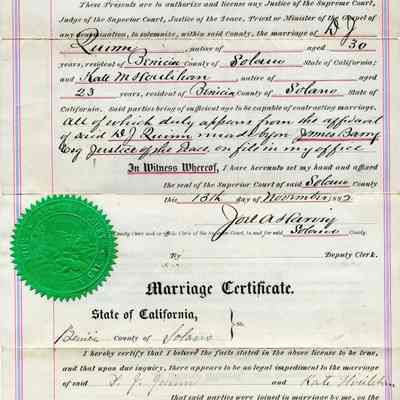 These Presents are to authorize and license any Justice of the Supreme Court,
Judge of the Superior Court, Justice of the Peace, Priest or Minister of the Gospel of
any denomination, to solemnize, within said County, the marriage of D J
Quinn native of aged 30
years, resident of Benicia County of Solano State of California;
and Kate native of aged
23 years, resident of Benicia County of Solano State of
California. Said parties being of sufficient age to be capable of contracting marriage.
All of which duly appears from the affidavit
of said D J Quinn made by James Barry
Esq Justice of the Peace on file in my office
In Witness Whereof, I have hereunto set my hand and affixed
the seal of the Superior Court of said Solano County
this 13th day of November 188
County Clerk and ex-officio Clerk of the Superior Court, in and for said Solano County.
By Deputy Clerk.
Marriage Certificate.
State of California,
Benicia County of Solano } ss.
I hereby certify that I believe the facts stated in the above license to be true,
and that upon due inquiry, there appears to be no legal impediment to the marriage
of said D. J. Quinn and Kate
that said parties were joined in marriage by me, on the